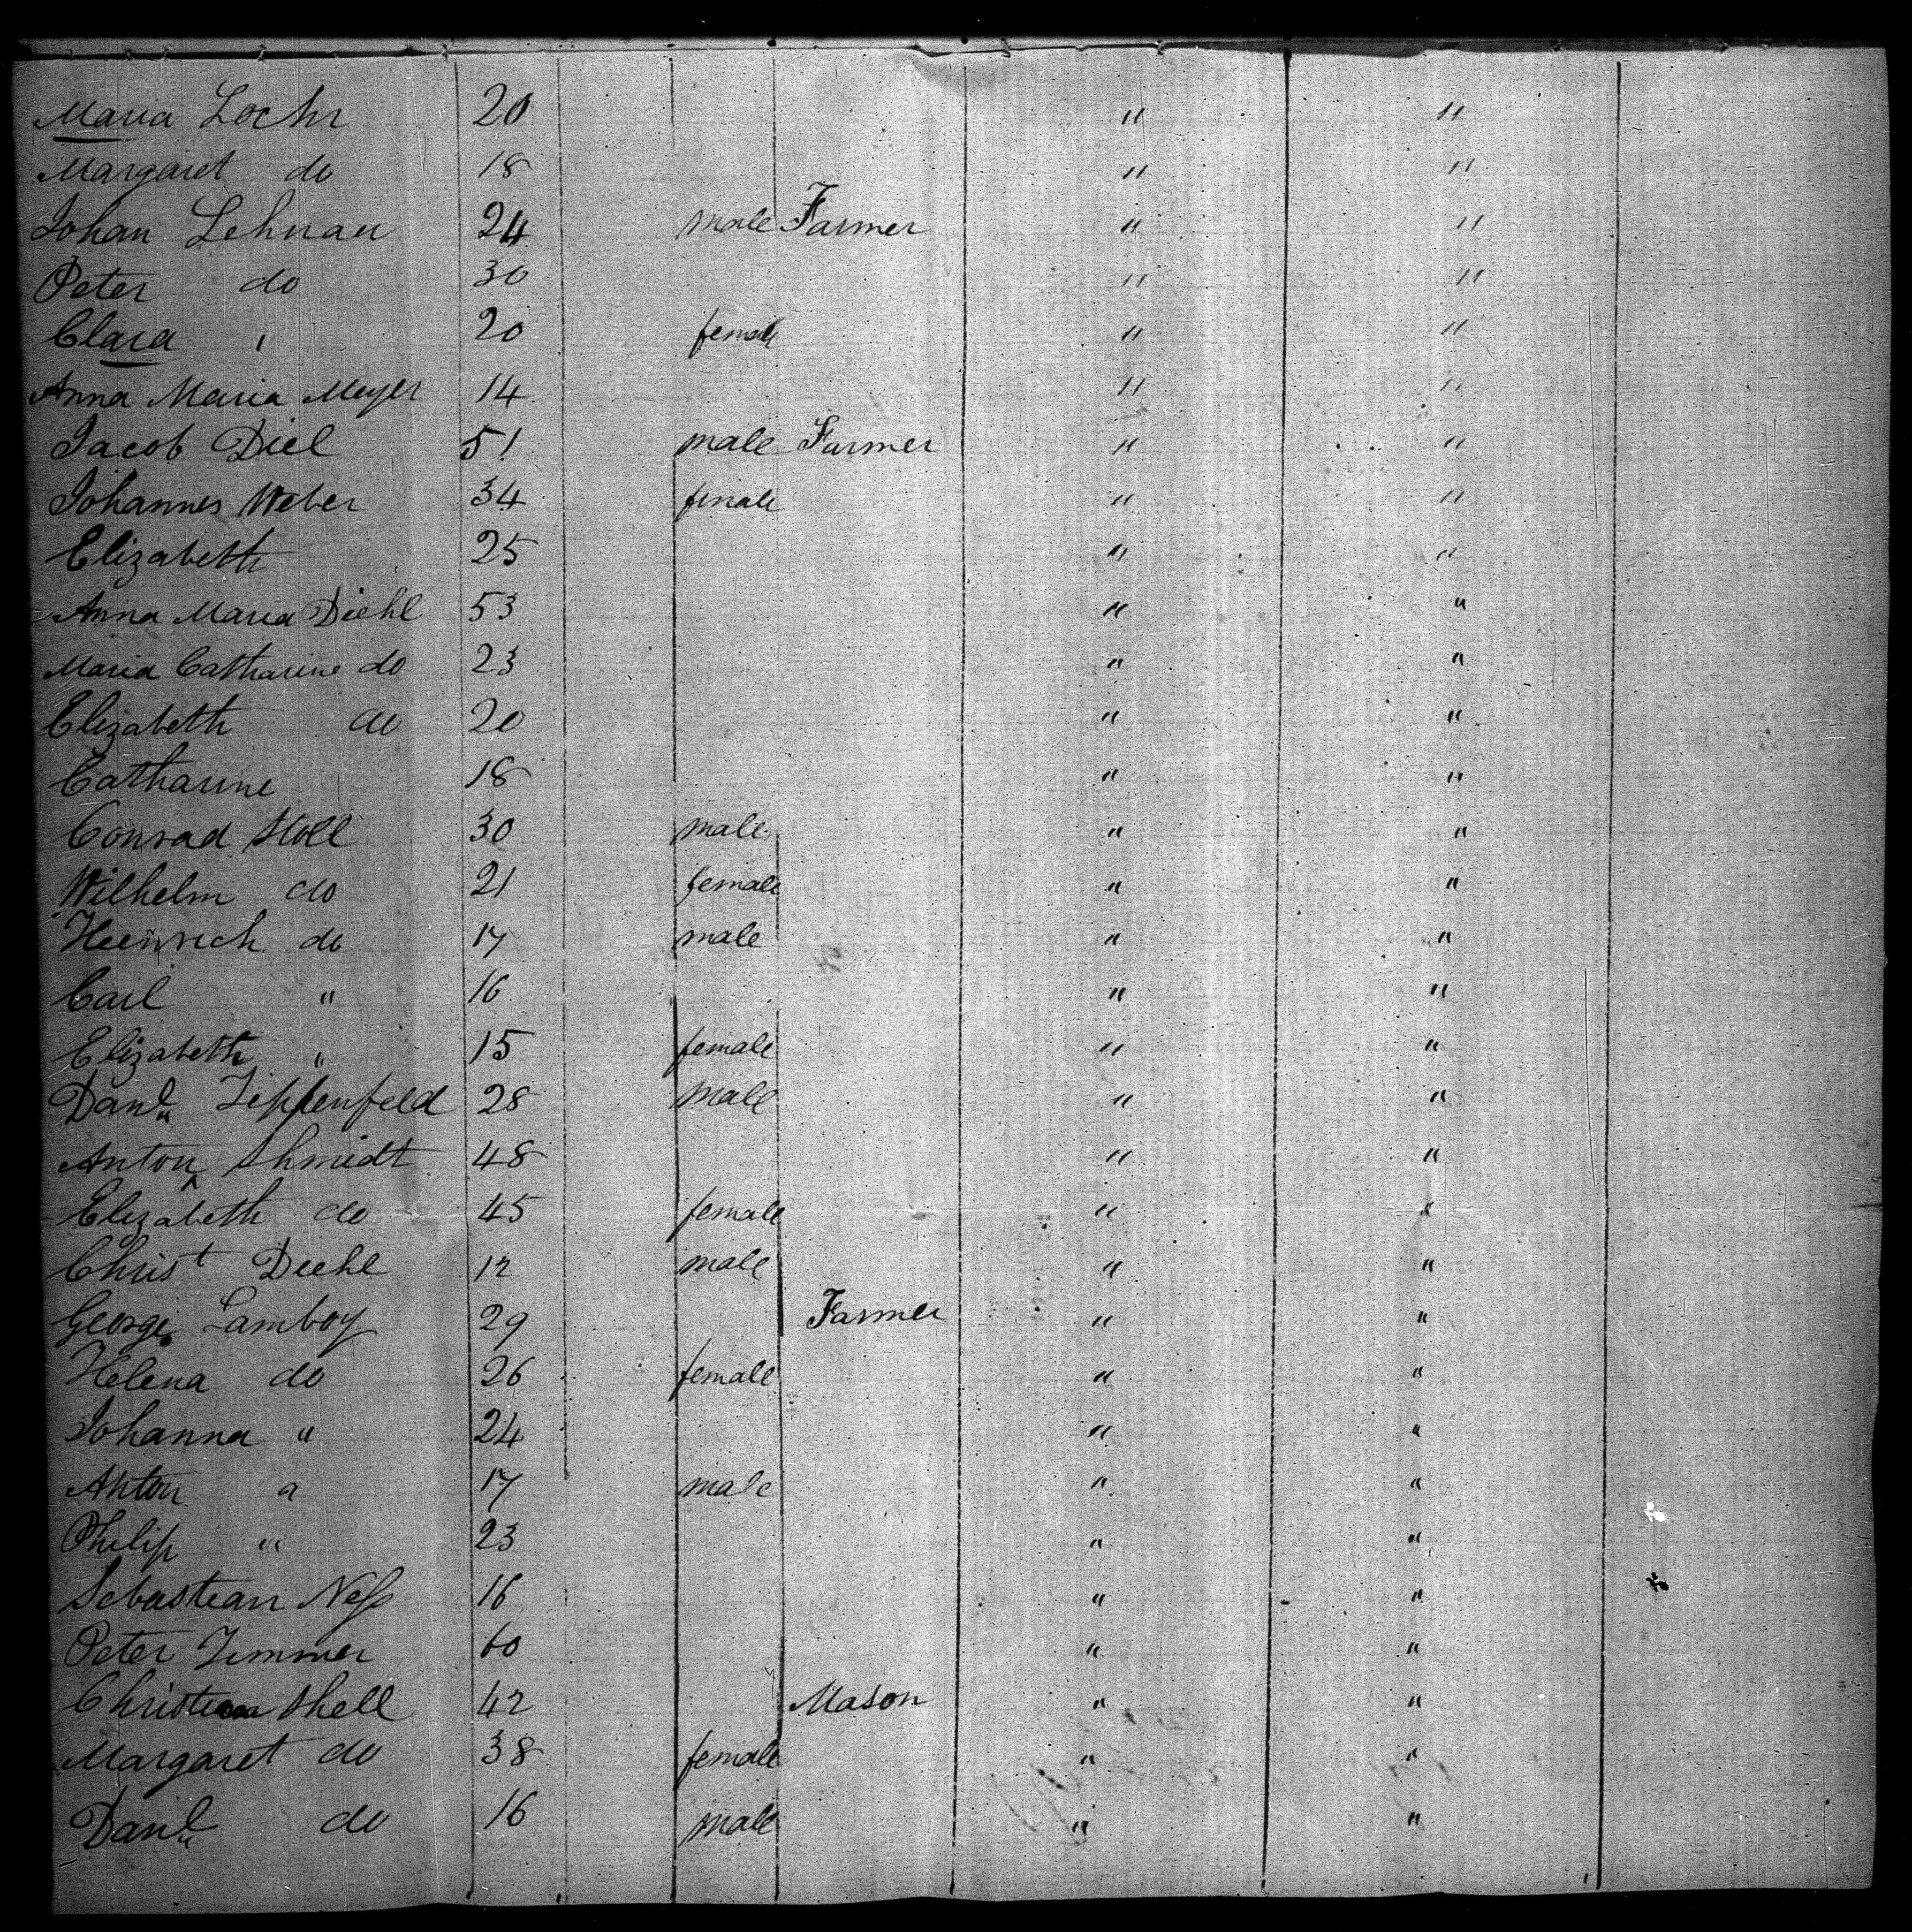 Maria Loehr 20 " "
Margaret do 18 " "
Johan Lehnau 24 male Farmer " "
Peter do 30 " "
Clara " 20 female " "
Anna Maria Meyer 14 " "
Jacob Diel 51 male Farmer " "
Johannes Weber 34 female " "
Elizabeth 25 " "
Anna Maria Diehl 53 " "
Maria Catharine do 23 " "
Elizabeth do 20 " "
Catharine 18 " "
Conrad Stoll 30 male " "
Wilhelm do 21 female " "
Heinrich do 17 male " "
Carl " 16 " "
Elizabeth " 15 female " "
Danl. 28 male " "
Anton Shmidt 48 " "
Elizabeth do 45 female " "
Christ Diehl 12 male " "
George Lamboy 29 Farmer " "
Helena do 26 female " "
Johanna " 24 " "
Anton " 17 male " "
Philip " 23 " "
Sebastian Ness 16 " "
Peter Zimmer 60 " "
Christian Shell 42 Mason " "
Margaret do 38 female " "
Danl. do 16 male " "